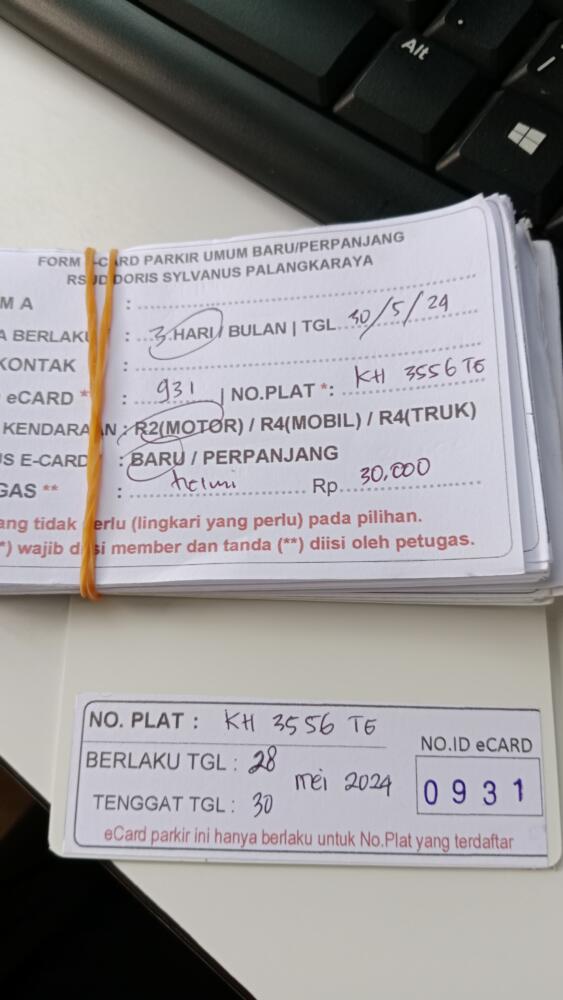 Alt
FORM E-CARD PARKIR UMUM BARU/PERPANJANG
RSUD DORIS SYLVANUS PALANGKARAYA
M A :
A BERLAKU : 3 HARI / BULAN | TGL 30/5/24
KONTAK :
eCARD * : 931 | NO.PLAT *: KH 3556 TE
KENDARAAN : R2(MOTOR) / R4(MOBIL) / R4(TRUK)
US E-CARD : BARU / PERPANJANG
GAS ** : helmi Rp. 30.000
ang tidak perlu (lingkari yang perlu) pada pilihan.
*) wajib diisi member dan tanda (**) diisi oleh petugas.
NO. PLAT : KH 3556 TE
BERLAKU TGL : 28
mei 2024
TENGGAT TGL : 30
NO.ID eCARD
0931
eCard parkir ini hanya berlaku untuk No.Plat yang terdaftar